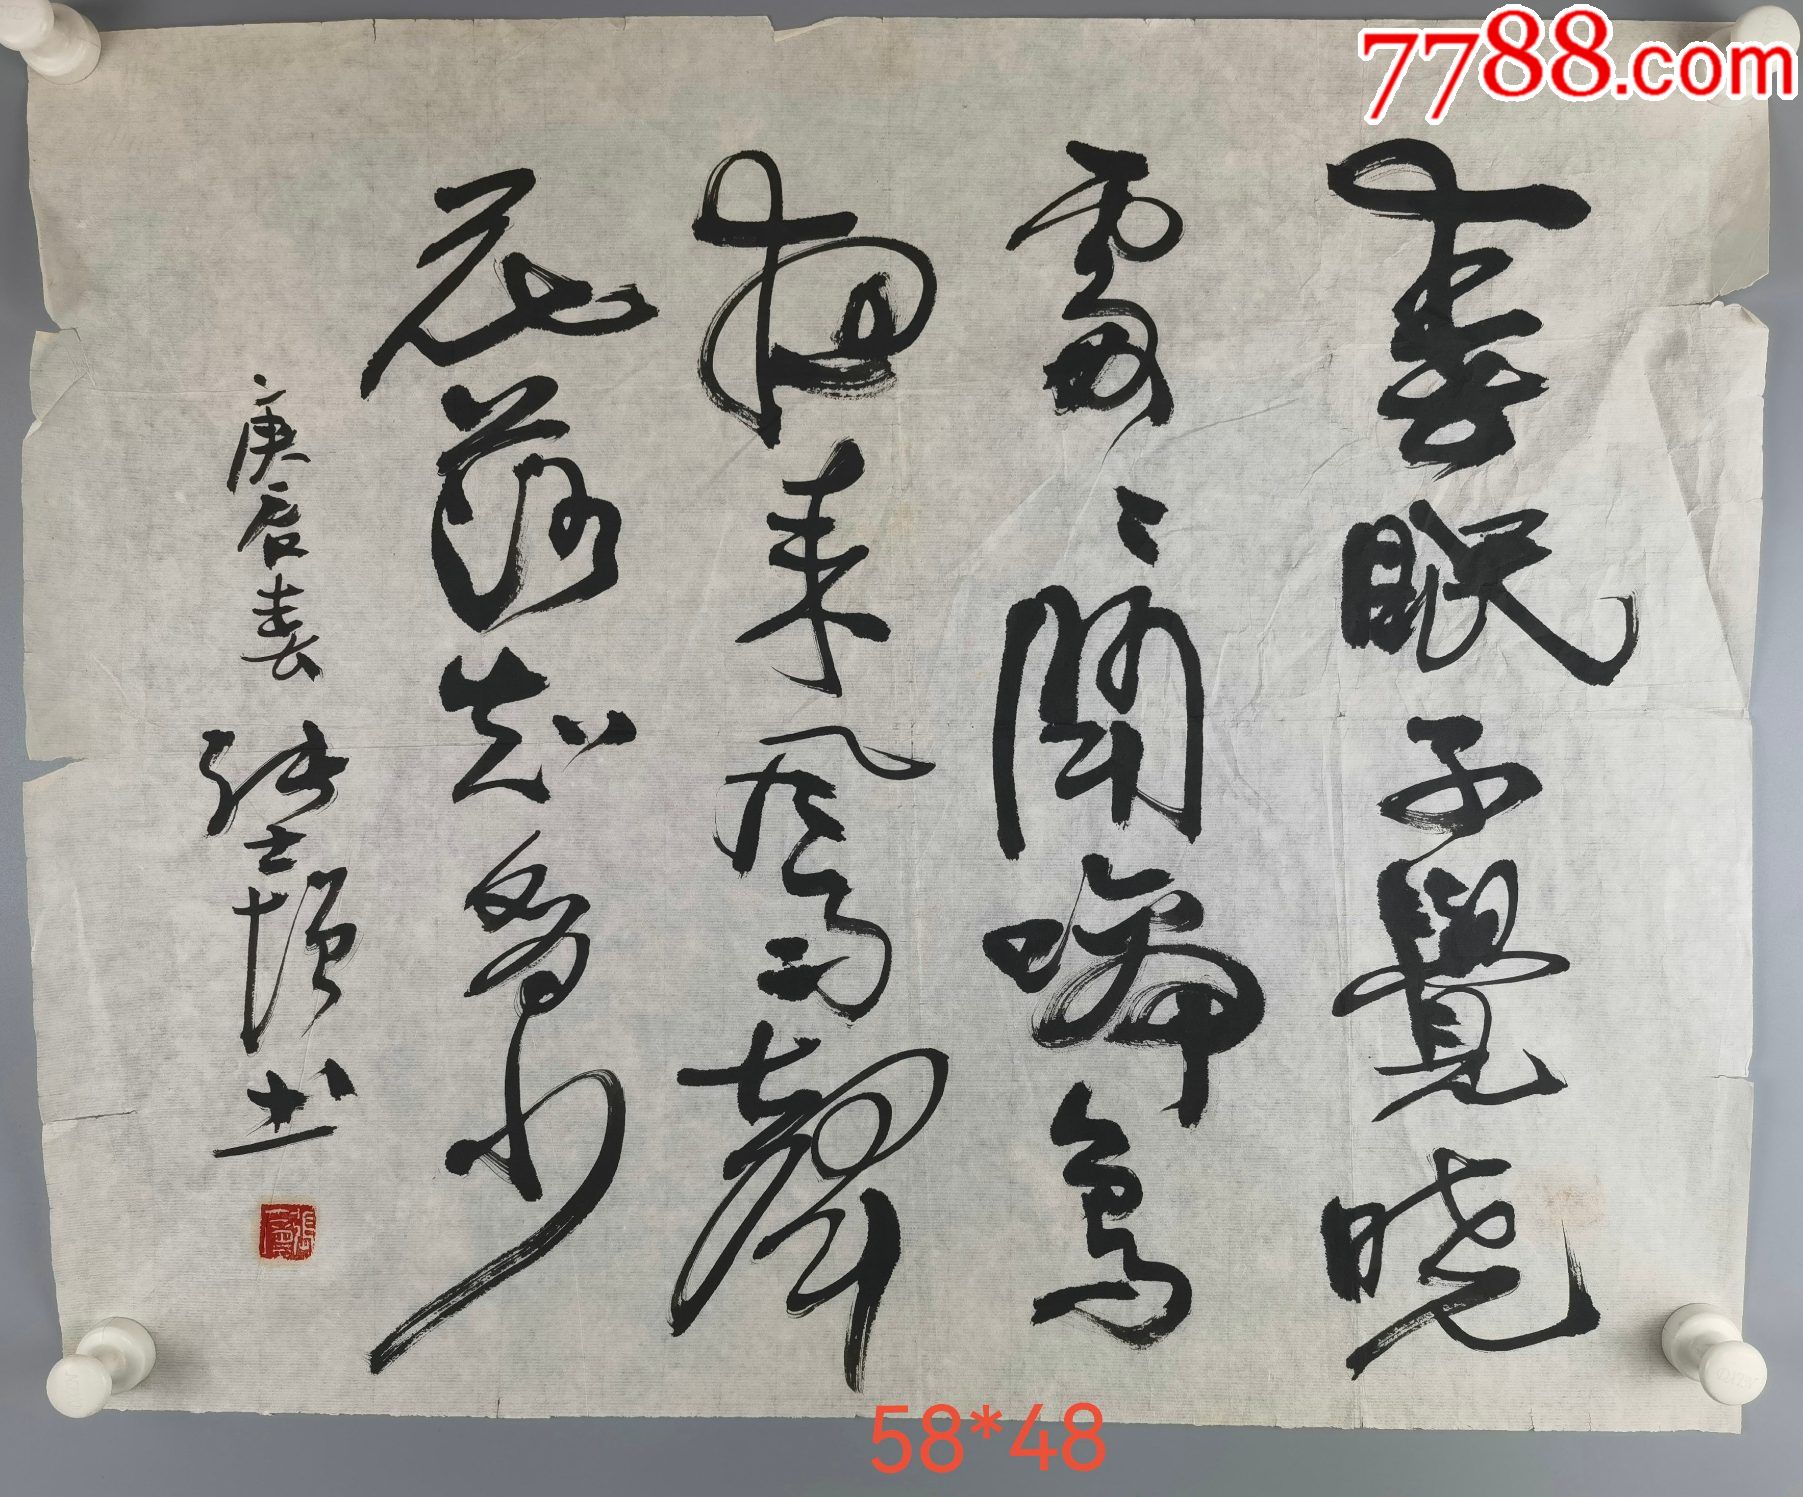 7788.com
春眠不覺晓
處々聞啼鳥
夜来風雨聲
花落知多少
庚辰春 张士增书
58*48